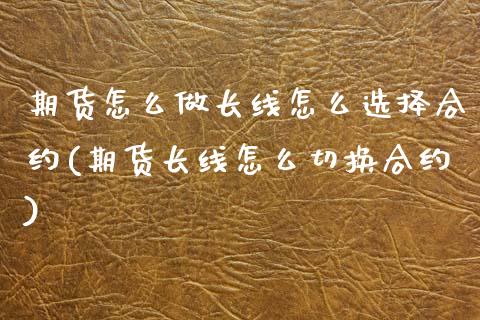 期货怎么做长线怎么选择合
约(期货长线怎么切换合约
)